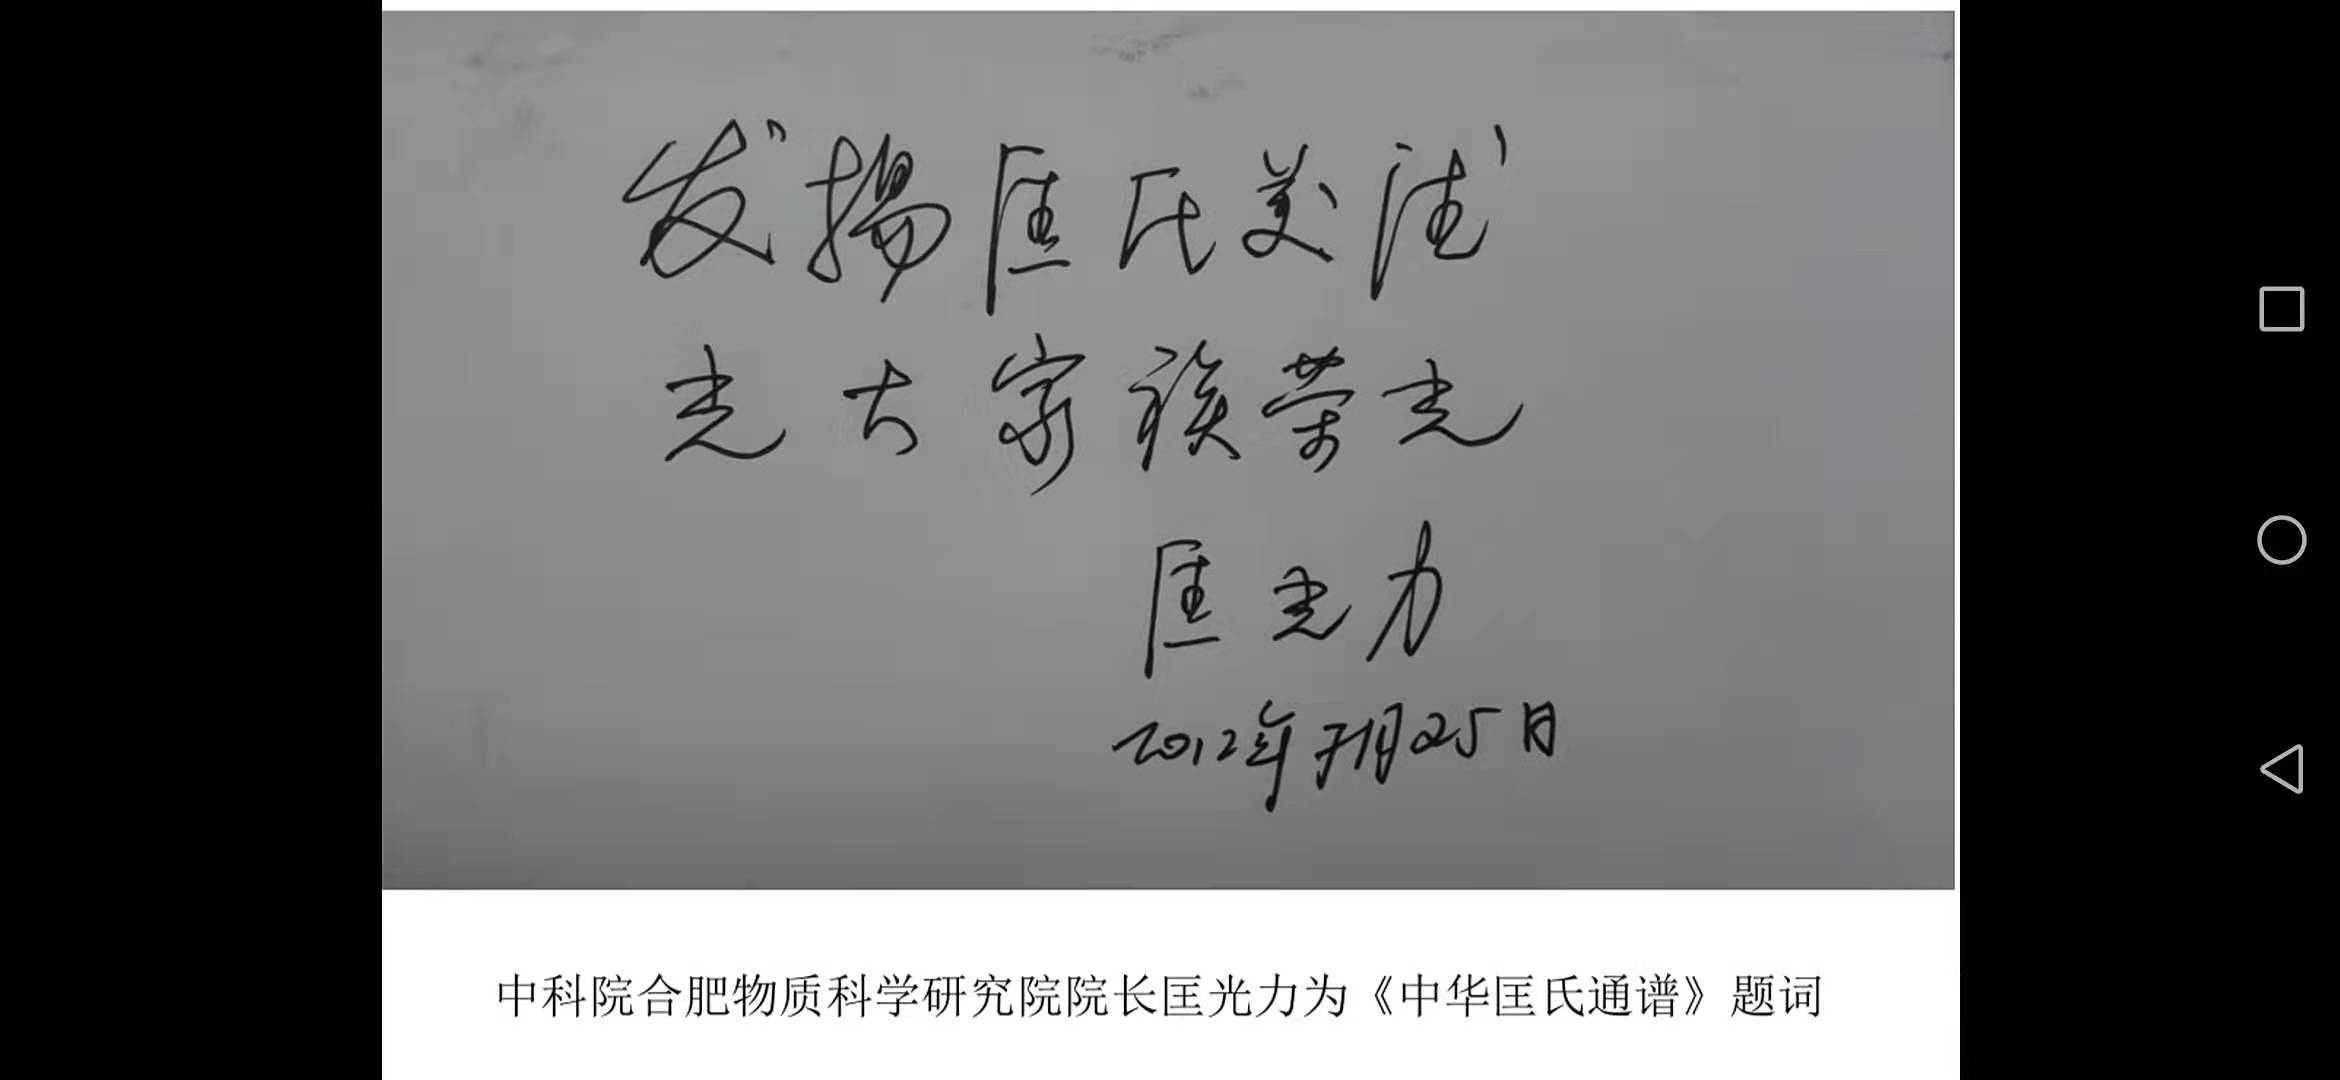 发扬匡氏美德
光大家族荣光
匡光力
2012年7月25日
中科院合肥物质科学研究院院长匡光力为《中华匡氏通谱》题词